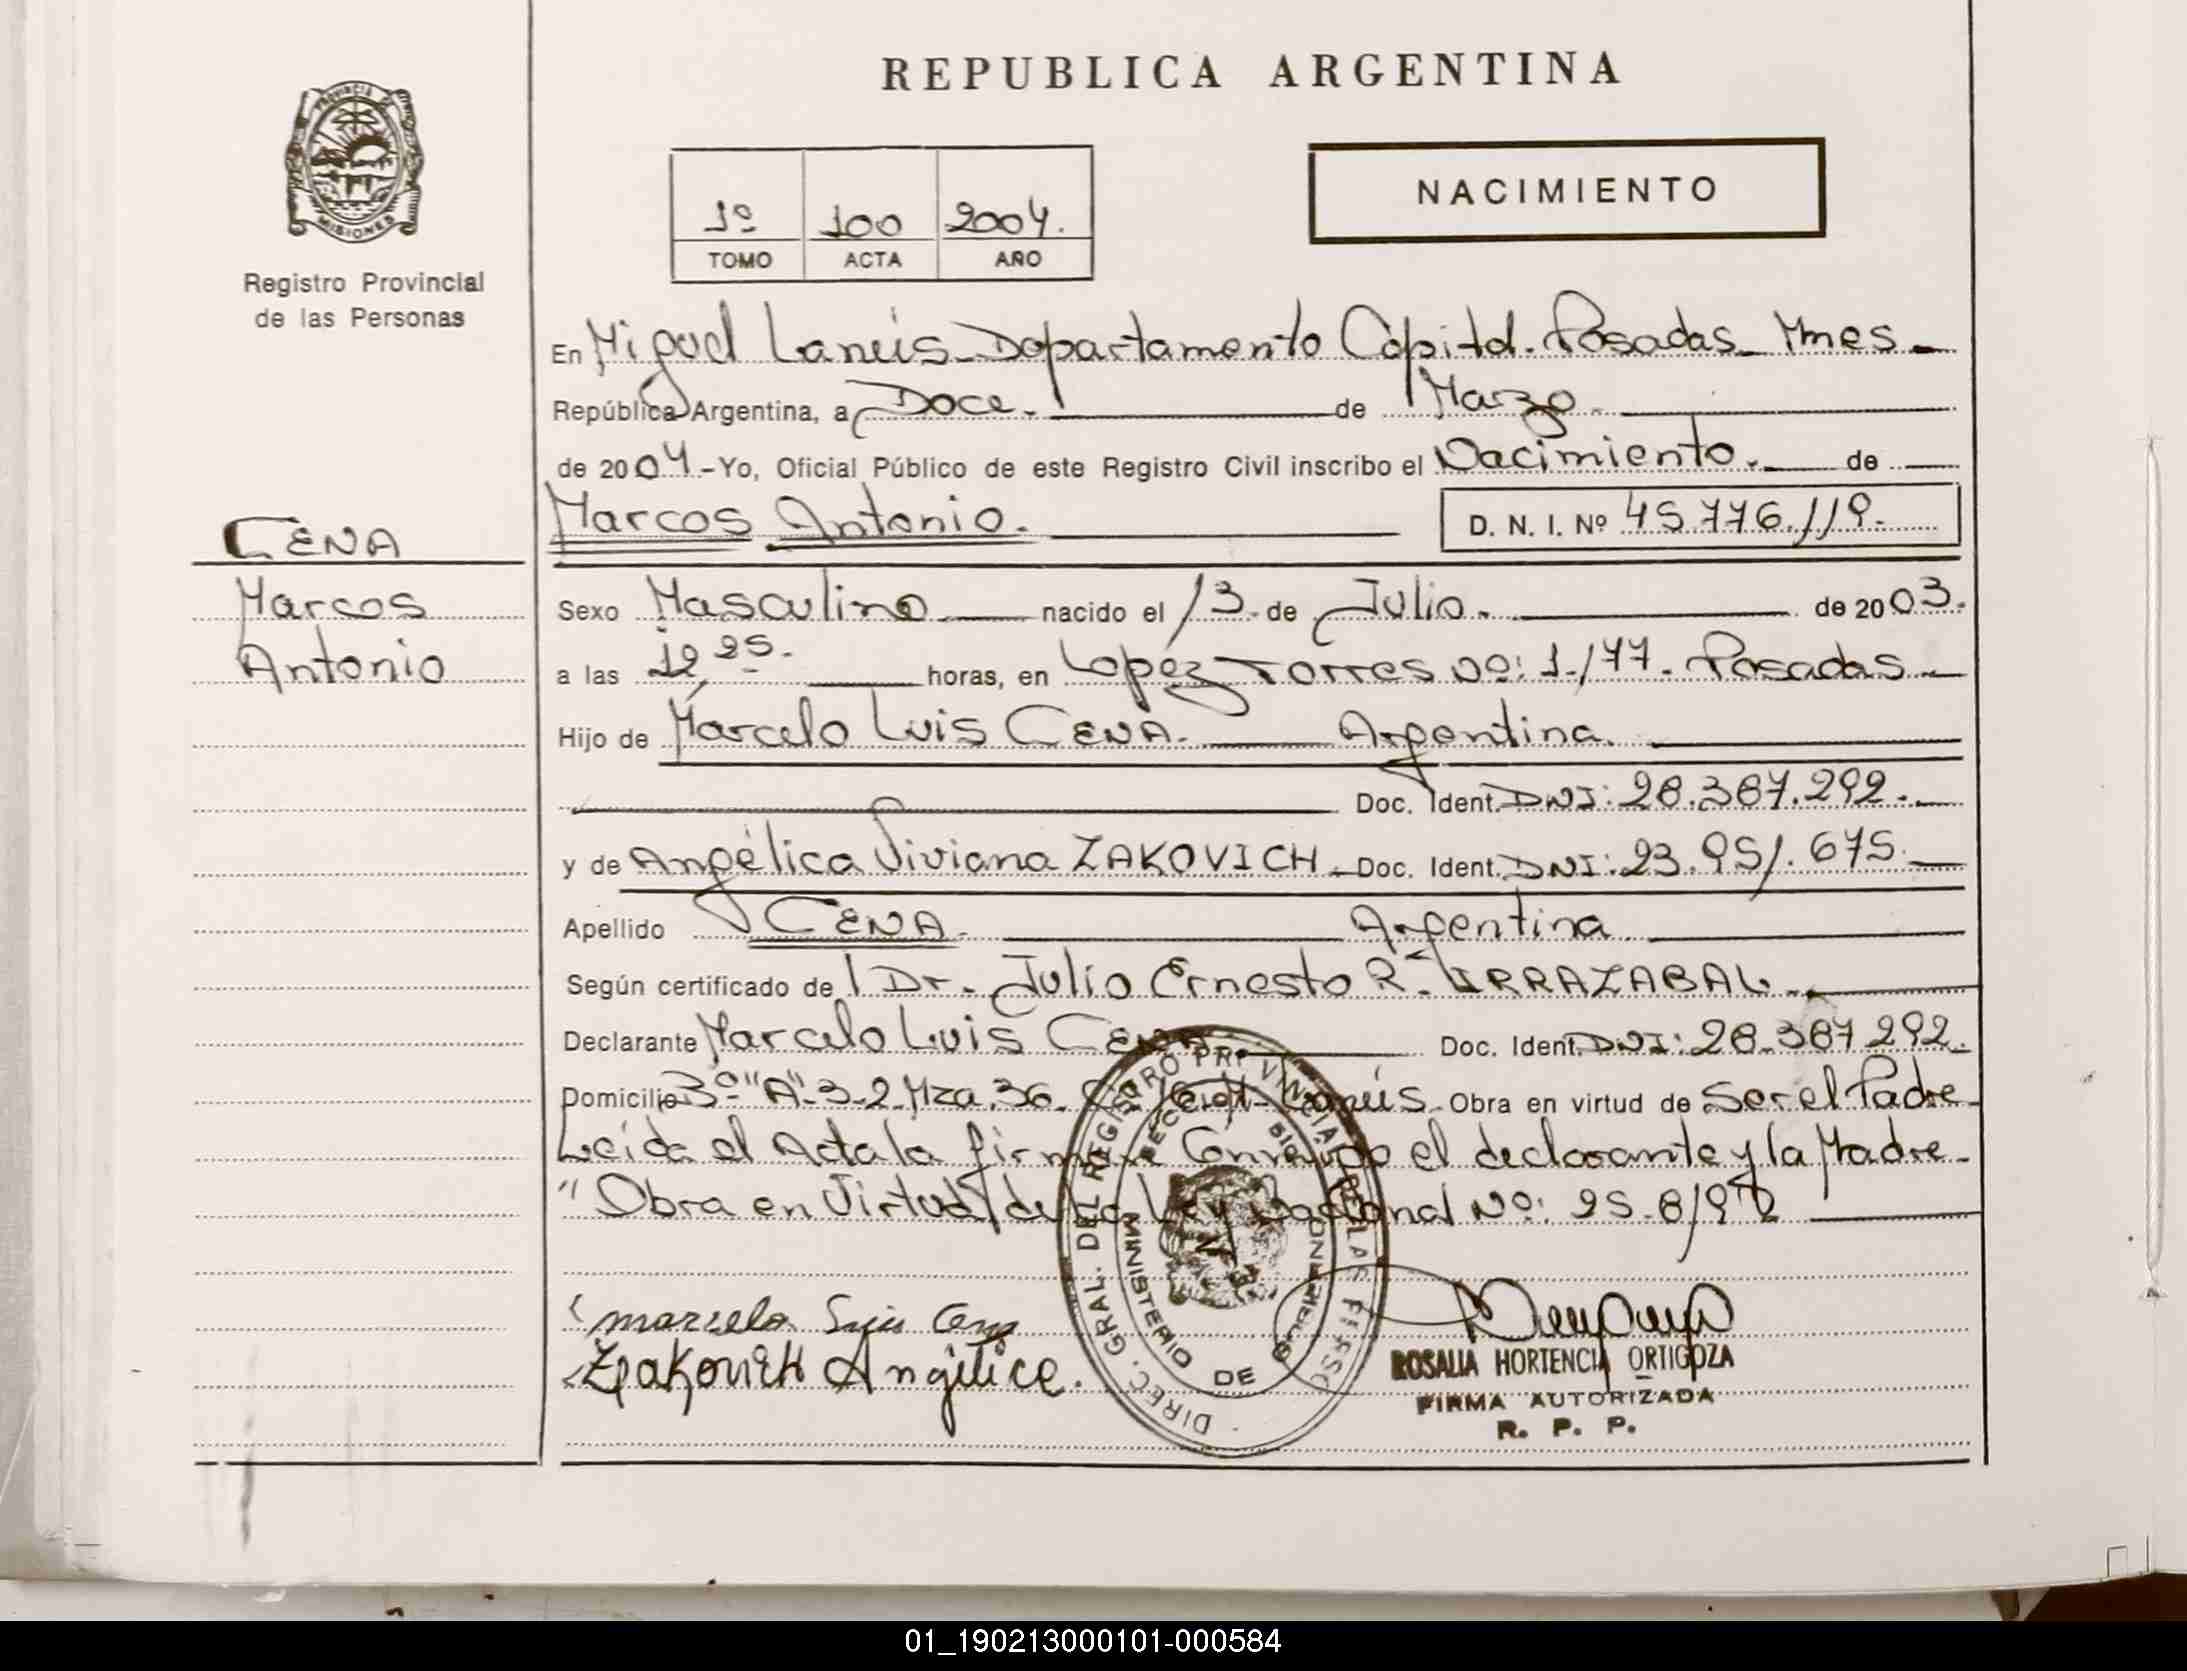 REPUBLICA ARGENTINA
PROVINCIA DE
MISIONES
Registro Provincial
de las Personas
1º 100 2004.
TOMO ACTA AÑO
NACIMIENTO
En Miguel Lanús - Departamento Capital. Posadas - Mnes -
República Argentina, a Doce. de Marzo.
de 2004.- Yo, Oficial Público de este Registro Civil inscribo el Nacimiento. de
Marcos Antonio. D. N. I. Nº 45.776.119.
CENA
Marcos
Antonio
Sexo Masculino nacido el 13 de Julio. de 2003.
a las 12,25. horas, en Lopez Torres Nº: 1.177. Posadas
Hijo de Marcelo Luis CENA. Argentina.
Doc. Ident. DNI: 28.387.292.
y de Angélica Viviana ZAKOVICH. Doc. Ident. DNI: 23.951.675.
Apellido CENA. Argentina
Según certificado de l Dr. Julio Ernesto R. IRRAZABAL.
Declarante Marcelo Luis CENA Doc. Ident. DNI: 28.387.292.
Domicilio 3º "A" 3-2. Mza. 36. Lanús. Obra en virtud de Ser el Padre
Leida el Acta la firman Conmigo el declarante y la Madre -
"Obra en Virtud de la Ley Nacional Nº: 25.819
Marcelo Luis Cena
Zakovich Angelica.
DIREC. GRAL. DEL REGISTRO PROVINCIAL DE LAS PERSO
MINISTERIO DE GOBIERNO
ROSALIA HORTENCIA ORTIGOZA
FIRMA AUTORIZADA
R. P. P.
01_190213000101-000584